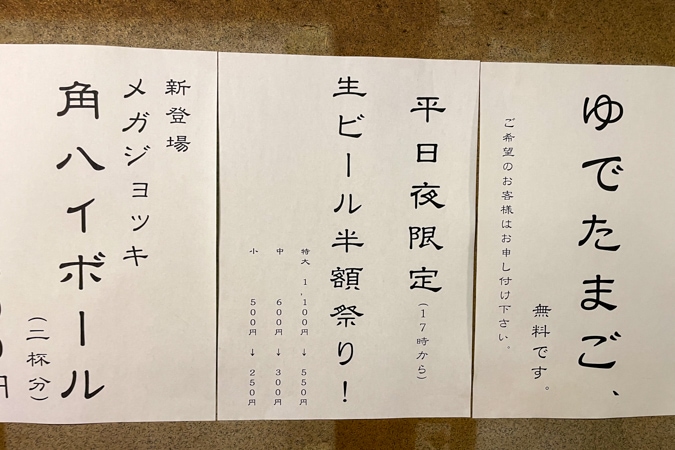 ゆでたまご、
無料です。
ご希望のお客様はお申し付け下さい。
平日夜限定(17時から)
生ビール半額祭り！
特大 1,100円 → 550円
中 600円 → 300円
小 500円 → 250円
新登場
メガジョッキ
角ハイボール
(二杯分)
円